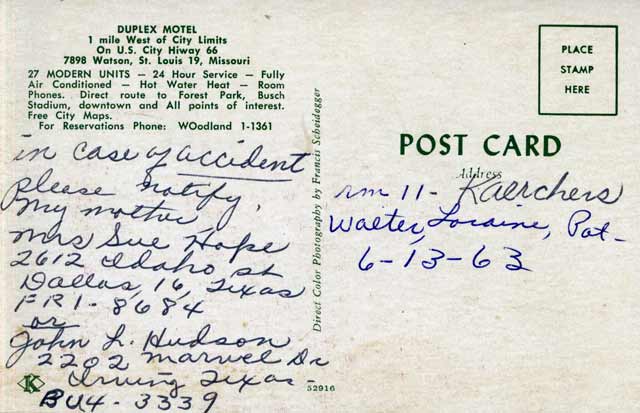 DUPLEX MOTEL
1 mile West of City Limits
On U.S. City Hiway 66
7898 Watson, St. Louis 19, Missouri
27 MODERN UNITS — 24 Hour Service — Fully
Air Conditioned — Hot Water Heat — Room
Phones. Direct route to Forest Park, Busch
Stadium, downtown and All points of interest.
Free City Maps.
For Reservations Phone: WOodland 1-1361
in case of accident
please notify,
My mother,
Mrs Sue Hope
2612 Idaho St
Dallas, 16, Texas
FR1-8684
or
John L. Hudson
2202 Marvel Dr
Irving Texas-
BU4-3339
K
Direct Color Photography by Francis Scheidegger
52916
PLACE
STAMP
HERE
POST CARD
Address
rm 11 - Kaerchers
Walter, Loraine, Pat-
6-13-63